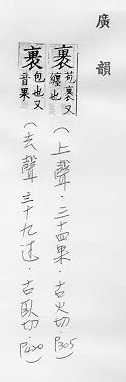 廣韻
裹 苞裹又纏也 (上聲·三十四果·古火切·P305)
裹 包也又音果 (去聲·三十九過·古臥切 P420)